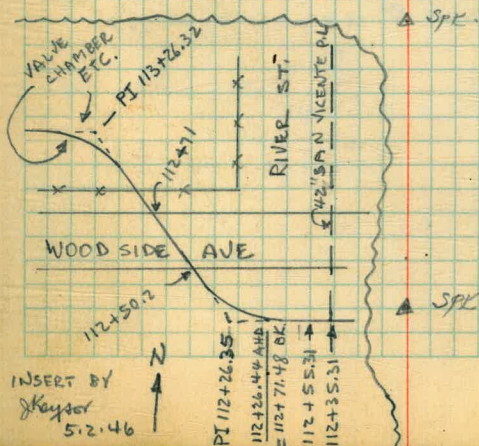 VALVE
CHAMBER
ETC.
PI 113+26.32
Spk.
112+71
RIVER ST.
42" SAN VICENTE P.L.
WOODSIDE AVE
112+50.2
Spk
N
INSERT BY
JKeysor
5.2.46
PI 112+26.35
112+26.44 AHD.
= 112+71.48 BK.
112+55.31
112+35.31